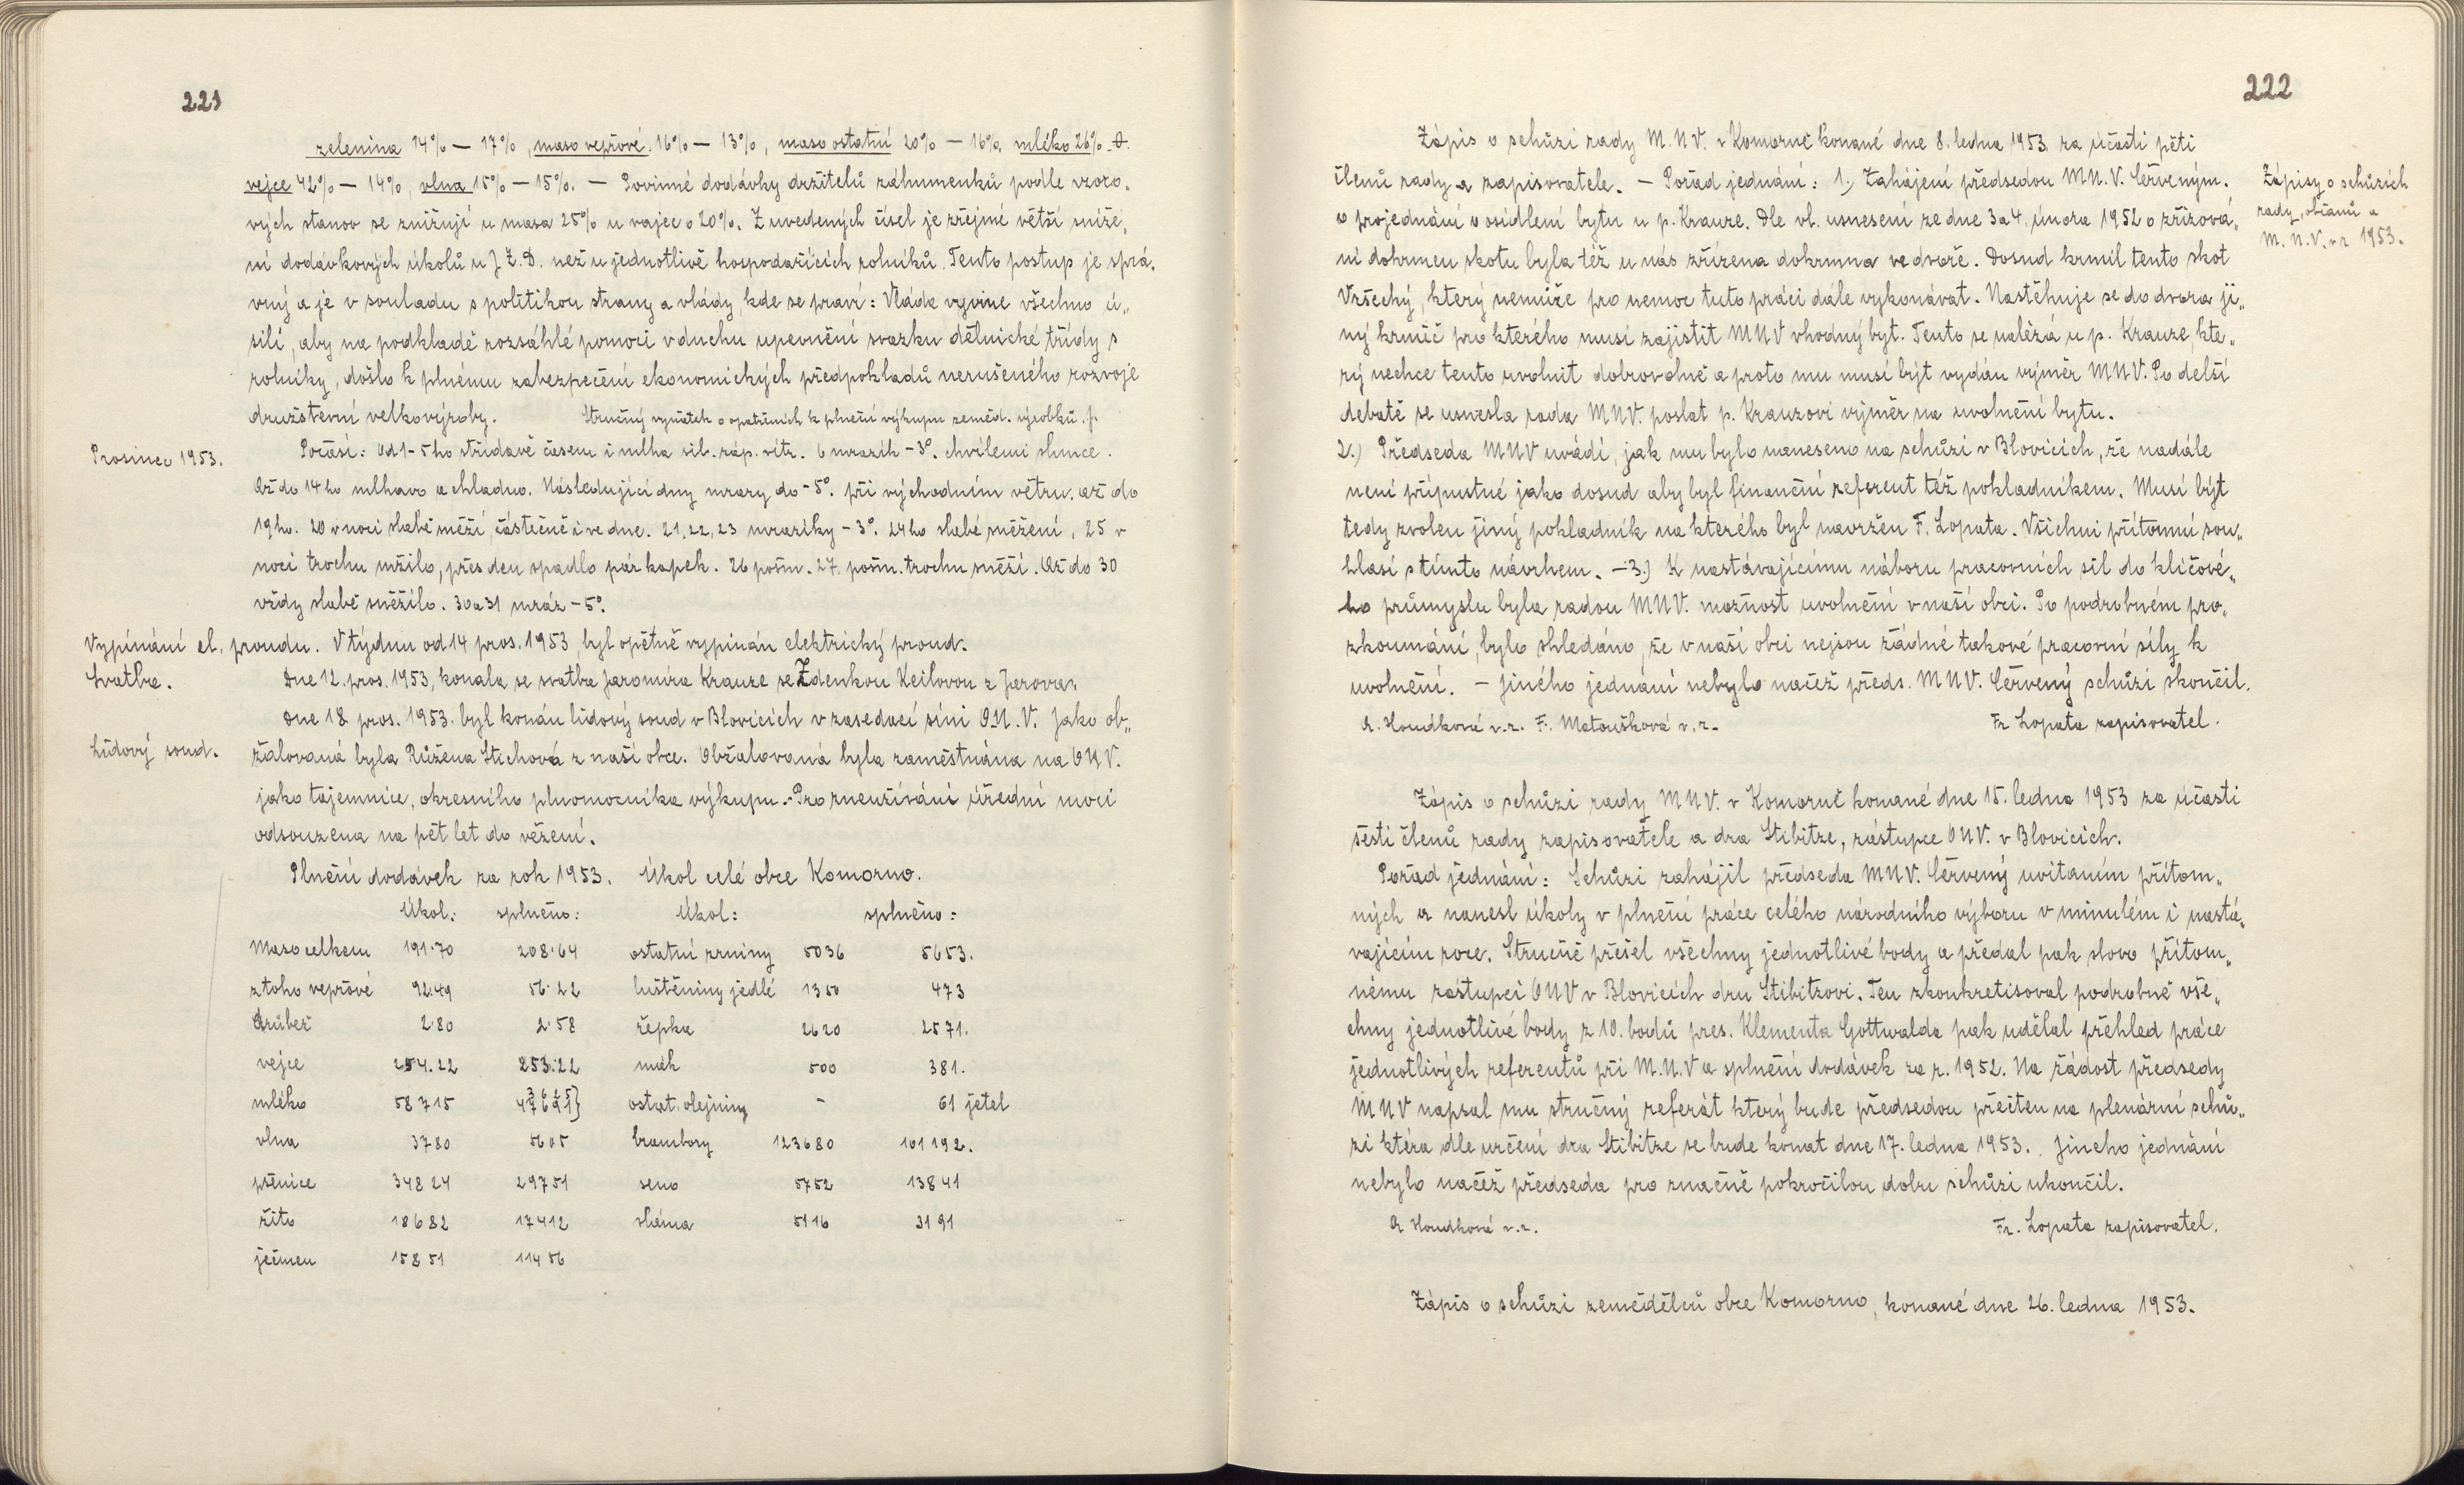 221
zelenina 14% — 17%, maso vepřové 16% — 13%, maso ostatní 20% — 16%, mléko 26% -
vejce 42% — 14%, vlna 15% — 15%. — Povinné dodávky držitelů záhumenků podle vzoro„
vých stanov se znižují u masa 25% u vajec o 20%. Z uvedených čísel je zřejmé větší sníže„
ní dodávkových úkolů u J.Z.D. než u jednotlivě hospodařících rolníků. Tento postup je sprá„
vný a je v souladu s politikou strany a vlády, kde se praví: Vláda vyvine všechno ú„
silí, aby na podkladě rozsáhlé pomoci v duchu upevnění svazku dělnické třídy s
rolníky, došlo k plnému zabezpečení ekonomických předpokladů nerušeného rozvoje
družstevní velkovýroby. Stručný vyňatek o opatřeních k plnění výkupu zeměd. výrobků.
Prosinec 1953.
Počasí: Od 1-5ho střídavě časem i mlha sil. záp. vítr. 6 mrazík -3°. chvílemi slunce.
Až do 14ho mlhavo a chladno. Následující dny mrazy do -5°. při východním větru. až do
19ho. 20 v noci slabě sněží, částečně i ve dne. 21, 22, 23 mrazíky -3°. 24ho slabé sněžení, 25 v
noci trochu mžilo, přes den spadlo pár kapek. 26 pošm. 27. pošm. trochu sněží. Až do 30
vždy slabě sněžilo. 30 a 31 mráz -5°.
Vypínání el. proudu. V týdnu od 14 pros. 1953, byl opětně vypínán elektrický proud.
Svatba.
Dne 12. pros. 1953, konala se svatba Jaromíra Krauze se Zdenkou Keilovou z Jarova.
Dne 18. pros. 1953. byl konán lidový soud v Blovicích v zasedací síni O.N.V. Jako ob„
Lidový soud.
žalovaná byla Růžena Stichová z naší obce. Obžalovaná byla zaměstnána na ONV.
jako tajemnice, okresního plnomocníka výkupu. - Pro zneužívání úřední moci
odsouzena na pět let do vězení.
Plnění dodávek za rok 1953. Úkol celé obce Komorno.
Úkol: splněno: Úkol: splněno:
Maso celkem 191.70 208.64 ostatní zrniny 5036 5653.
z toho vepřové 92.49 56.22 luštěniny jedlé 1350 473
Drůbež 2.80 2.58 řepka 2620 2571.
vejce 254.22 253.22 mák 500 381.
mléko 58715 ostat. olejniny - 61 jetel
vlna 3780 5605 brambory 123680 101192.
pšenice 34824 29751 seno 5752 13841
žito 18682 17412 sláma 5116 3191
ječmen 15851 11456
222
Zápis o schůzi rady M.N.V. v Komorně konané dne 8. ledna 1953 za účasti pěti
členů rady a zapisovatele. — Pořad jednání: 1.) Zahájení předsedou MN.V. Červeným.
Zápisy o schůzích
rady, občanů a
M.N.V. v r. 1953.
o projednání o osídlení bytu u p. Krauze. Dle vl. usnesení ze dne 3 a 4. února 1952 o zřizová„
ní dokrmen skotu byla též u nás zřízena dokrmna ve dvoře. Dosud krmil tento skot
Vršecký, který nemůže pro nemoc tuto práci dále vykonávat. Nastěhuje se do dvora ji„
ný krmič pro kterého musí zajistit MNV vhodný byt. Tento se nalézá u p. Krauze, kte„
rý nechce tento uvolnit dobrovolně a proto mu musí být vydán výměr MNV. Po delší
debatě se usnesla rada MNV. poslat p. Krauzovi výměr na uvolnění bytu.
2.) Předseda MNV uvádí, jak mu bylo naneseno na schůzi v Blovicích, že nadále
není přípustné jako dosud aby byl finanční referent též pokladníkem. Musí být
tedy zvolen jiný pokladník na kterého byl navržen F. Lopata. Všichni přítomní sou„
hlasí s tímto návrhem. — 3.) K nastávajícímu náboru pracovních sil do klíčové„
ho průmyslu byla radou MNV. možnost uvolnění v naší obci. Po podrobném pro„
zkoumání, bylo shledáno, že v naší obci nejsou žádné takové pracovní síly k
uvolnění. — Jiného jednání nebylo načež předs. MNV. Červený schůzi skončil.
A. Houdková v.r. F. Matoušková v.r. Fr Lopata zapisovatel.
Zápis o schůzi rady MNV. v Komorně konané dne 15. ledna 1953 za účasti
šesti členů rady zapisovatele a dra Stibitze, zástupce ONV. v Blovicích.
Pořad jednání: Schůzi zahájil předseda MNV. Červený uvítáním přítom„
ných a nanesl úkoly v plnění práce celého národního výboru v minulém i nastá„
vajícím roce. Stručně přešel všechny jednotlivé body a předal pak slovo přítom„
nému zástupci ONV v Blovicích dru Stibitzovi. Ten zkonkretisoval podrobně vše„
chny jednotlivé body z 10. bodů pres. Klementa Gottwalda pak udělal přehled práce
jednotlivých referentů při M.N.V a splnění dodávek za r. 1952. Na žádost předsedy
MNV napsal mu stručný referát který bude předsedou přečten na plenární schů„
zi která dle určení dra Stibitze se bude konat dne 17. ledna 1953. Jiného jednání
nebylo načež předseda pro značně pokročilou dobu schůzi ukončil.
A Houdková v.r. Fr. Lopata zapisovatel.
Zápis o schůzi zemědělců obce Komorno, konané dne 26. ledna 1953.